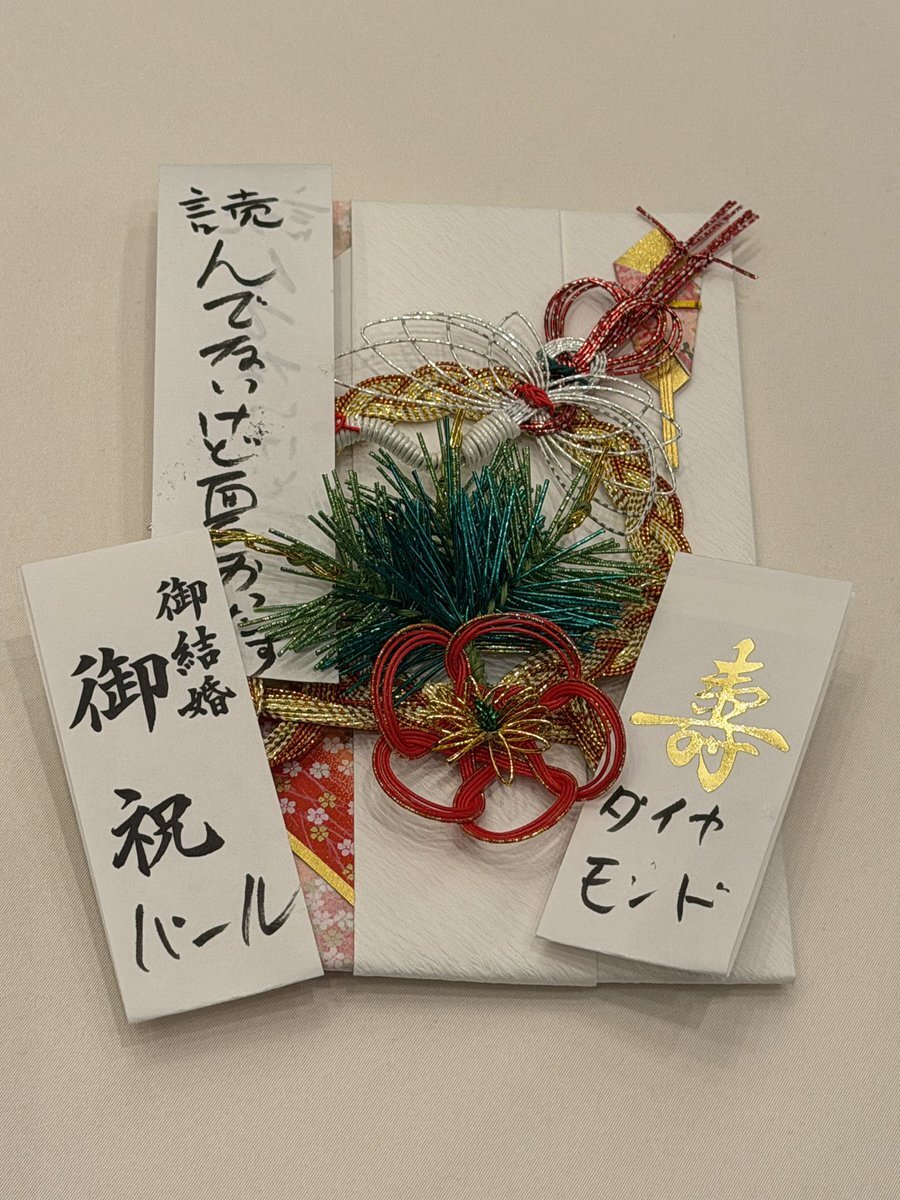 読んでないけど
御結婚
御祝
パール
寿
ダイヤ
モンド